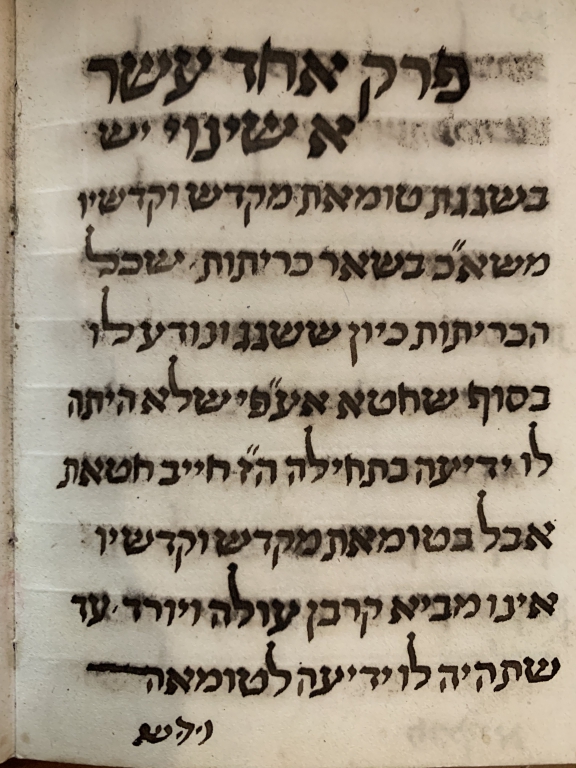 פרק אחד עשר
א שינוי יש
בשגגת טומאת מקדש וקדשיו
משא"כ בשאר כריתות, שכל
הכריתות כיון ששגג ונודע לו
בסוף שחטא אע"פי שלא היתה
לו ידיעה בתחילה ה"ז חייב חטאת
אבל בטומאת מקדש וקדשיו
אינו מביא קרבן עולה ויורד, עד
שתהיה לו ידיעה לטומאה